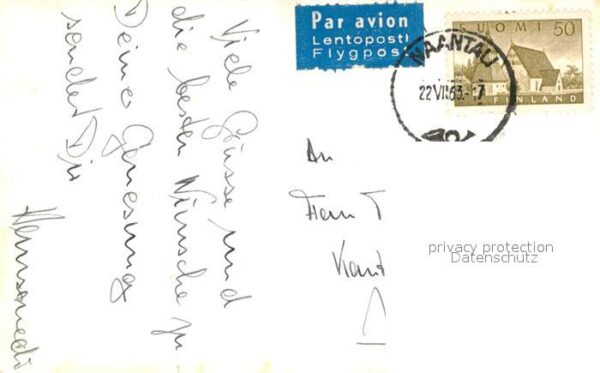 Viele Grüsse und
die besten Wünsche zu
Deiner Genesung
sendet Dir
Par avion
Lentoposti
Flygpost
SUOMI 50
FINLAND
NAANTALI
22 VII 63.-17
An
privacy protection
Datenschutz